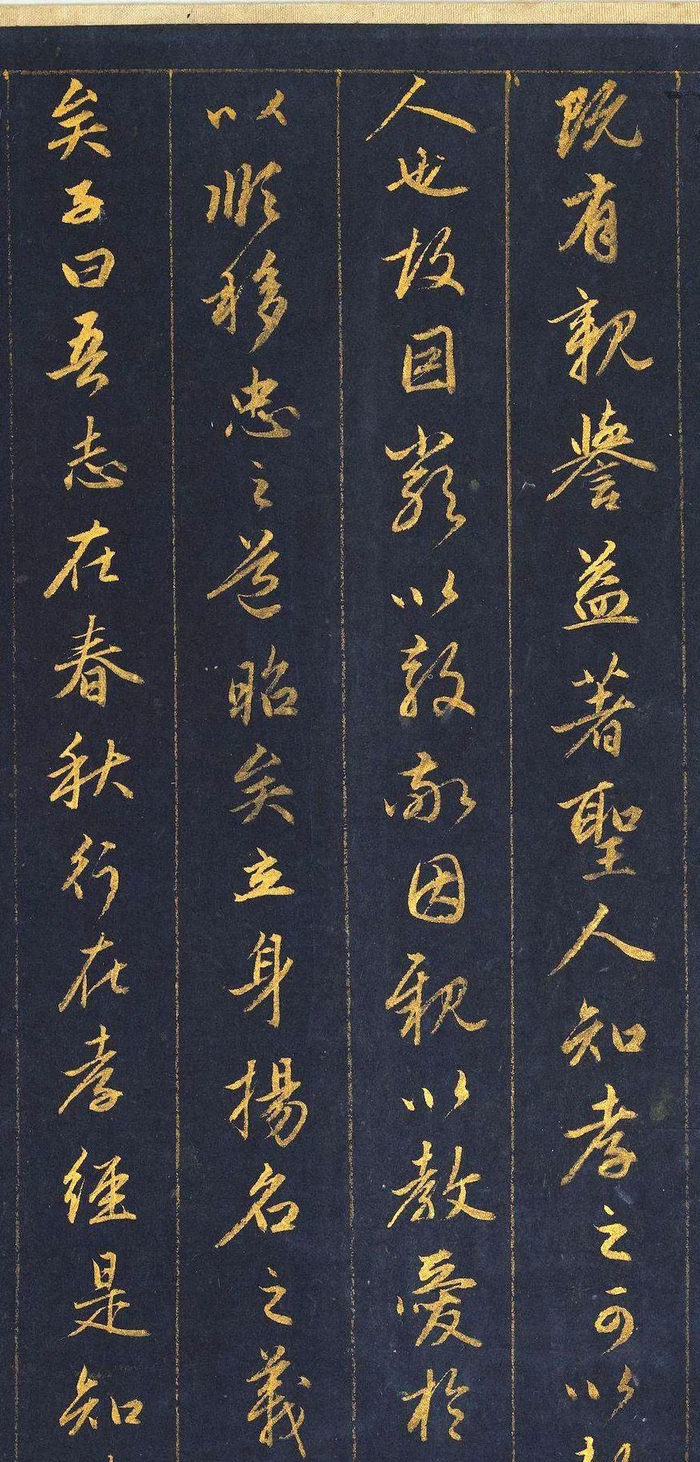 既有親譽益著聖人知孝之可以教
人也故因嚴以教敬因親以教愛於
以順移忠之道昭矣立身揚名之義
矣子曰吾志在春秋行在孝經是知